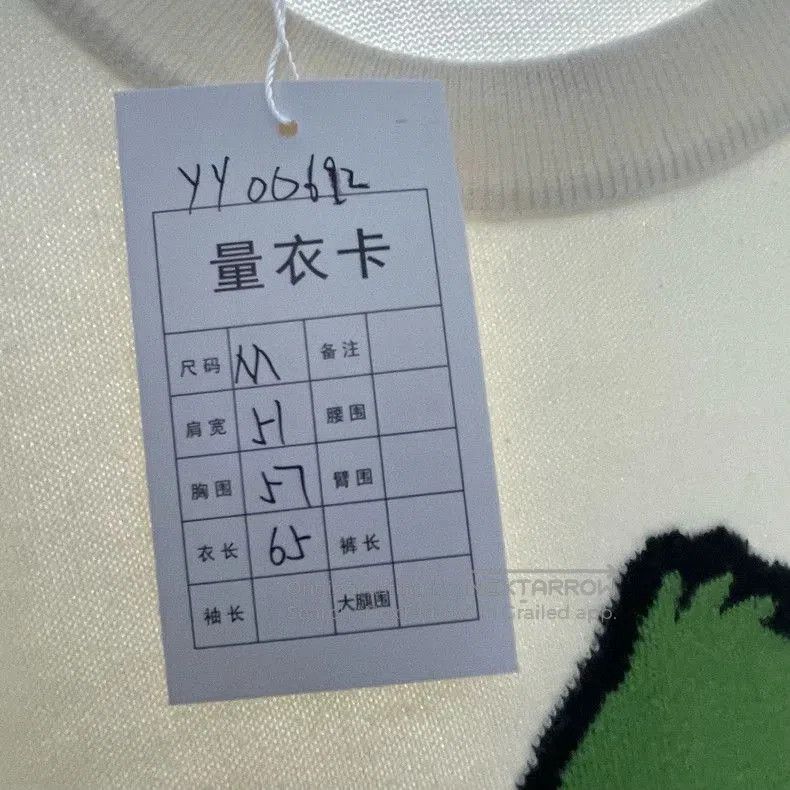 YY 00692
量衣卡
尺码 M 备注
肩宽 51 腰围
胸围 57 臂围
衣长 65 裤长
袖长 大腿围
NEXTARROW
Grailed app.